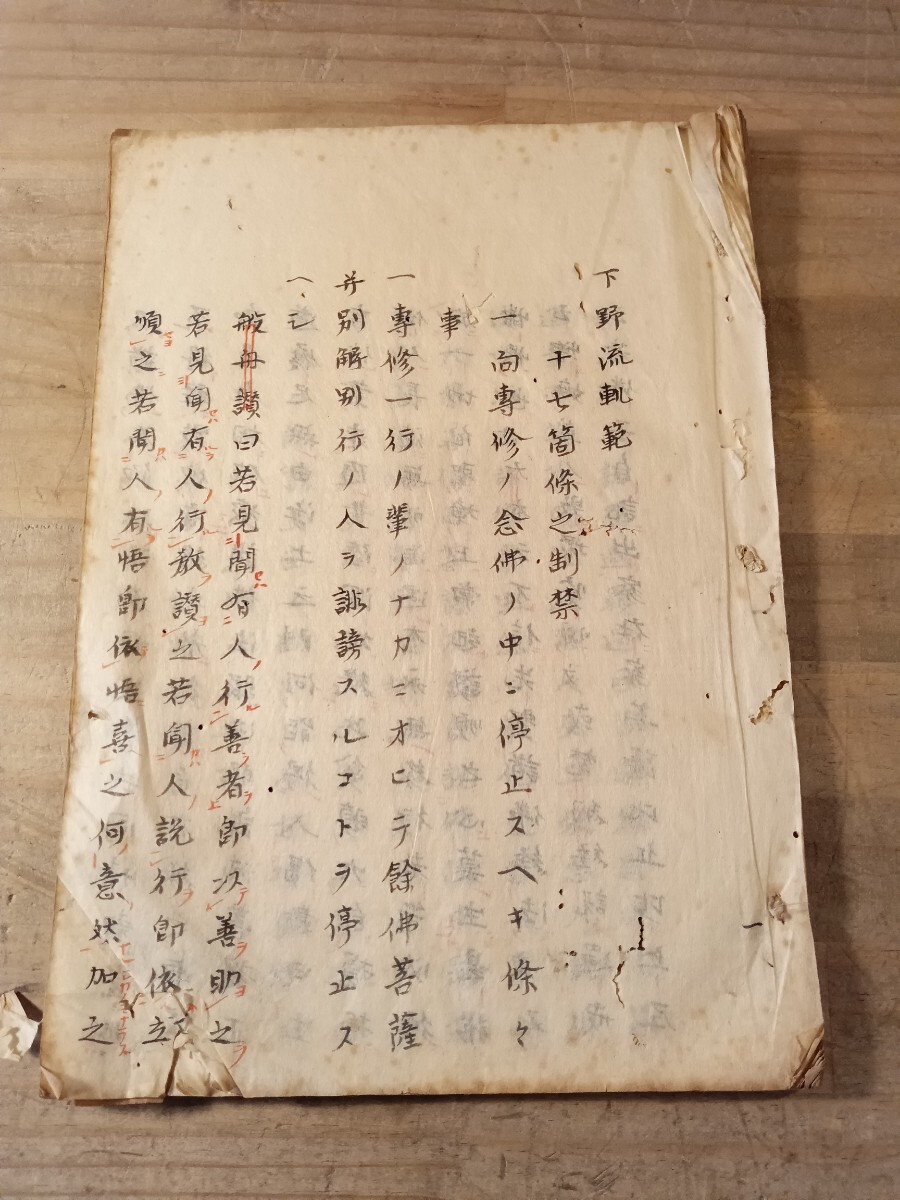 一
下野流軌範
十七箇條之制禁
一向專修ノ念佛ノ中ニ停止スヘキ條々
事
一專修一行ノ輩ノナカニオヒテ餘佛菩薩
并別解別行ノ人ヲ誹謗スルコトヲ停止ス
ヘシ
般舟讃曰若見聞有人行善者即以善助之
若見聞有人行教讃之若聞人説行即依
順之若聞人有悟即依悟喜之何意然加之